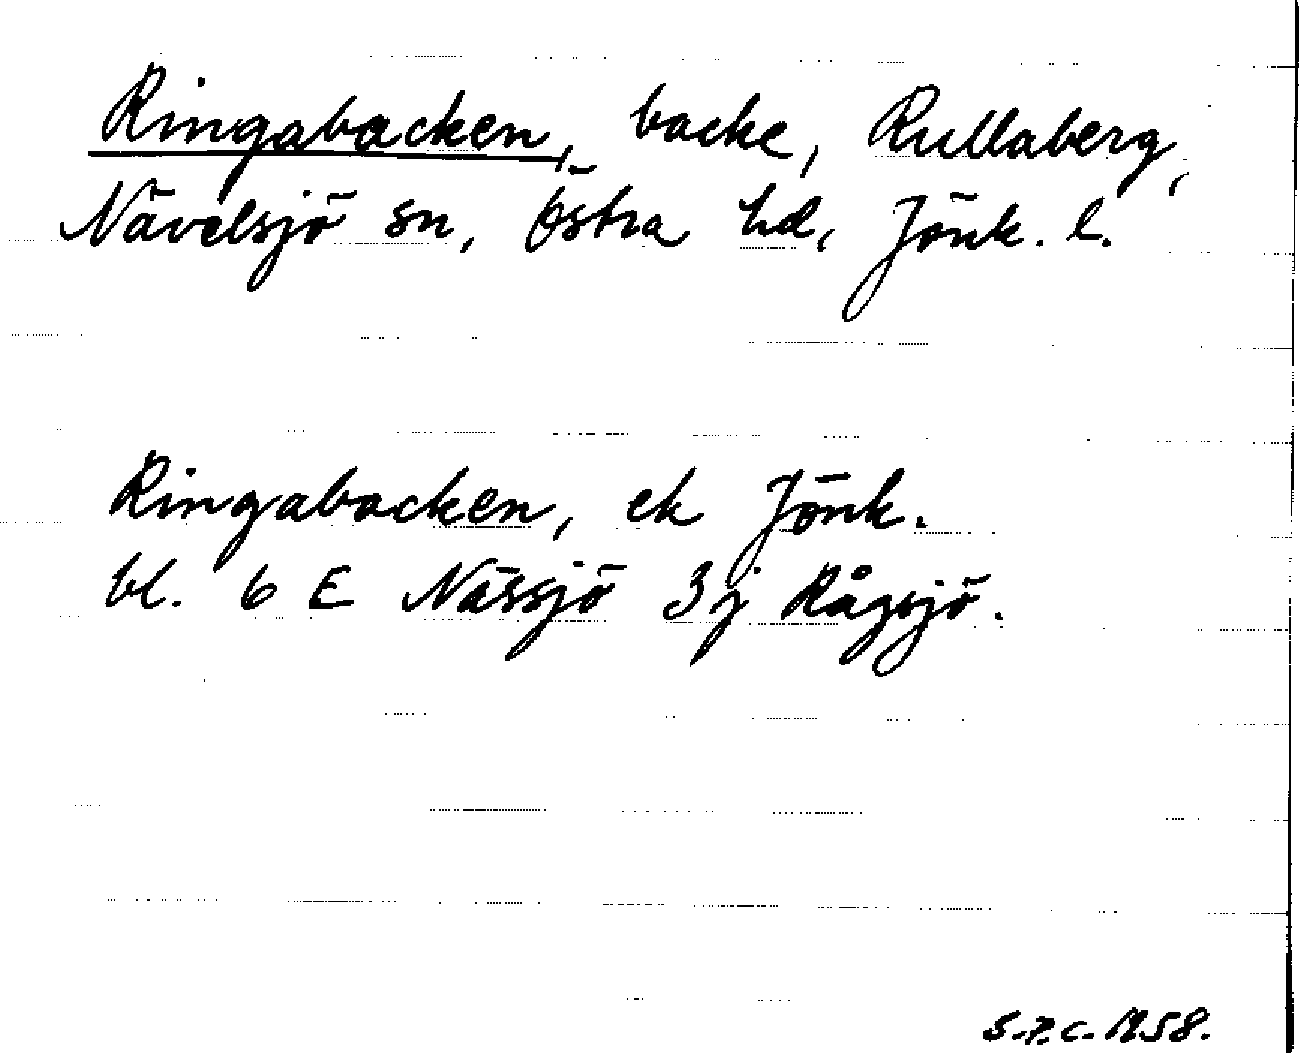 Ringabacken, backe, Rullaberg,
Nävelsjö sn, Östra hd, Jönk. l.
Ringabacken, ek Jönk.
bl. 6 E Nässjö 3 j Rågsjö.
S.P.C. 1958.